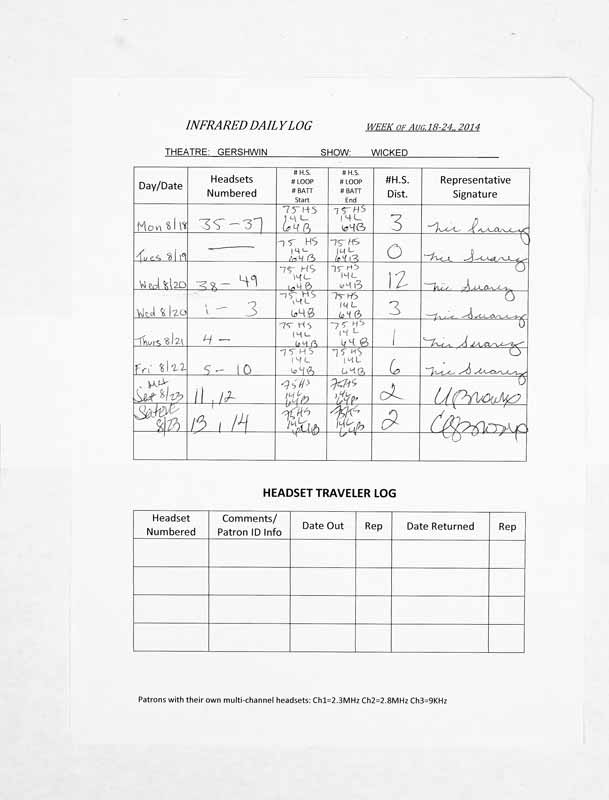 INFRARED DAILY LOG WEEK OF AUG.18-24, 2014
THEATRE: GERSHWIN SHOW: WICKED
Day/Date Headsets Numbered # H.S. # LOOP # BATT Start # H.S. # LOOP # BATT End #H.S. Dist. Representative Signature
Mon 8/18 35-37 75 HS 14L 64B 75 HS 14L 64B 3 Nic Suarez
Tues 8/19 — 75 HS 14L 64B 75 HS 14L 64B 0 Nic Suarez
Wed 8/20 38-49 75 HS 14L 64B 75 HS 14L 64B 12 Nic Suarez
Wed 8/20 1-3 75 HS 14L 64B 75 HS 14L 64B 3 Nic Suarez
Thurs 8/21 4- 75 HS 14L 64B 75 HS 14L 64B 1 Nic Suarez
Fri 8/22 5-10 75 HS 14L 64B 75 HS 14L 64B 6 Nic Suarez
Sat 8/23 11, 12 75HS 14L 64B 75HS 14L 64B 2
8/23 13, 14 75HS 14L 64B 75HS 14L 64B 2
HEADSET TRAVELER LOG
Headset Numbered Comments/ Patron ID Info Date Out Rep Date Returned Rep
Patrons with their own multi-channel headsets: Ch1=2.3MHz Ch2=2.8MHz Ch3=9KHz